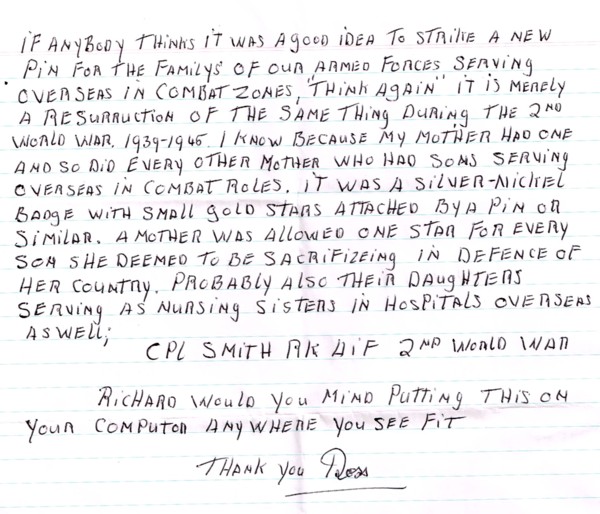 IF ANYBODY THINKS IT WAS A GOOD IDEA TO STRIKE A NEW
PIN FOR THE FAMILYS' OF OUR ARMED FORCES SERVING
OVERSEAS IN COMBAT ZONES, "THINK AGAIN" IT IS MERELY
A RESURRUCTION OF THE SAME THING DURING THE 2ND
WORLD WAR. 1939-1945. I KNOW BECAUSE MY MOTHER HAD ONE
AND SO DID EVERY OTHER MOTHER WHO HAD SONS SERVING
OVERSEAS IN COMBAT ROLES. IT WAS A SILVER-NICKEL
BADGE WITH SMALL GOLD STARS ATTACHED BY A PIN OR
SIMILAR. A MOTHER WAS ALLOWED ONE STAR FOR EVERY
SON SHE DEEMED TO BE SACRIFIZEING IN DEFENCE OF
HER COUNTRY. PROBABLY ALSO THEIR DAUGHTERS
SERVING AS NURSING SISTERS IN HOSPITALS OVERSEAS
AS WELL;
CPL SMITH RK AIF 2ND WORLD WAR
RICHARD WOULD YOU MIND PUTTING THIS ON
YOUR COMPUTOR ANYWHERE YOU SEE FIT
THANK YOU Ross